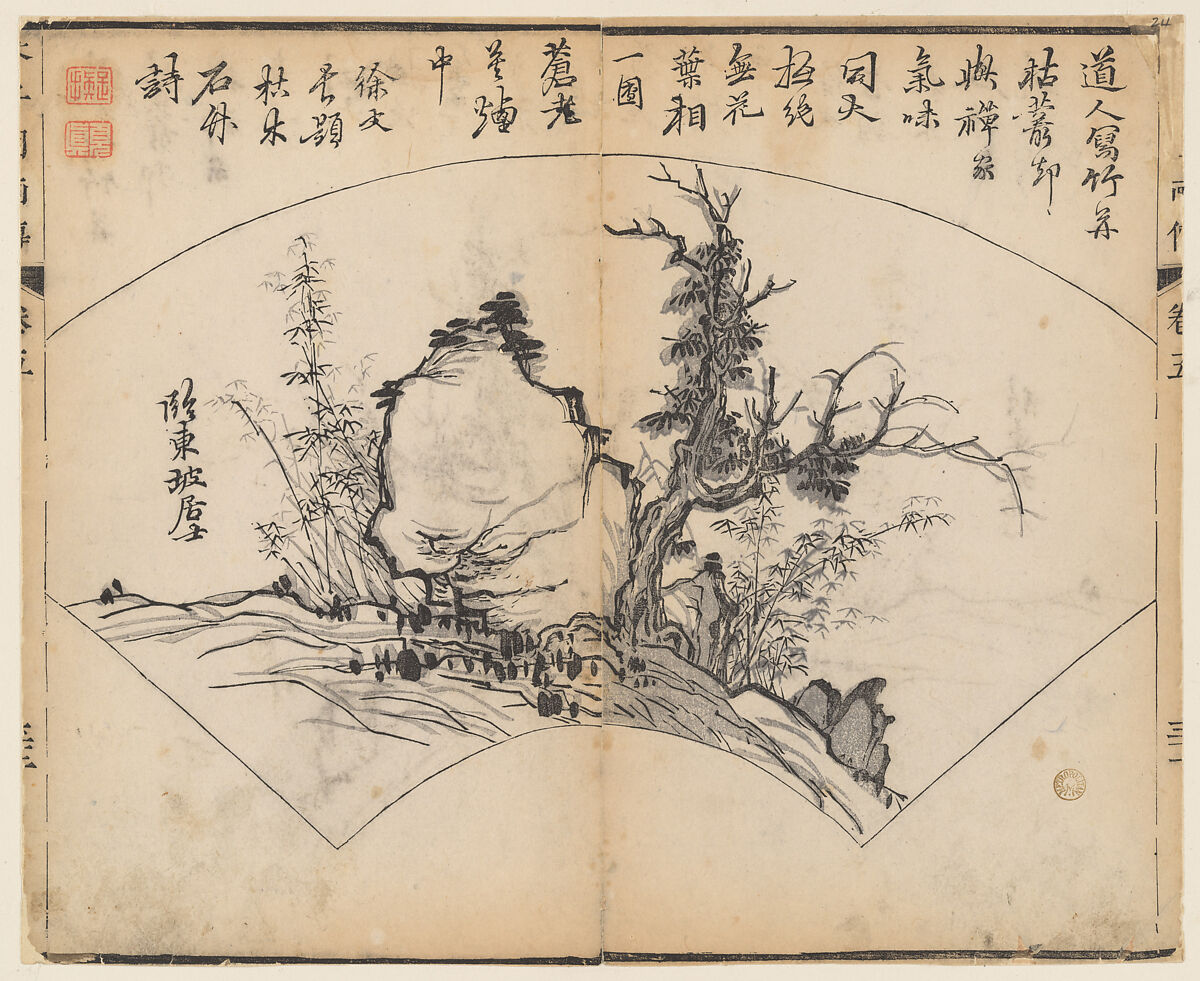 24
道人寫竹并
枯藂却
與禪家
氣味
同大
抵絕
無花
葉相
一團
蒼老
莫煙
中
徐文
長題
枯木
石竹
詩
臨東坡居士
卷五